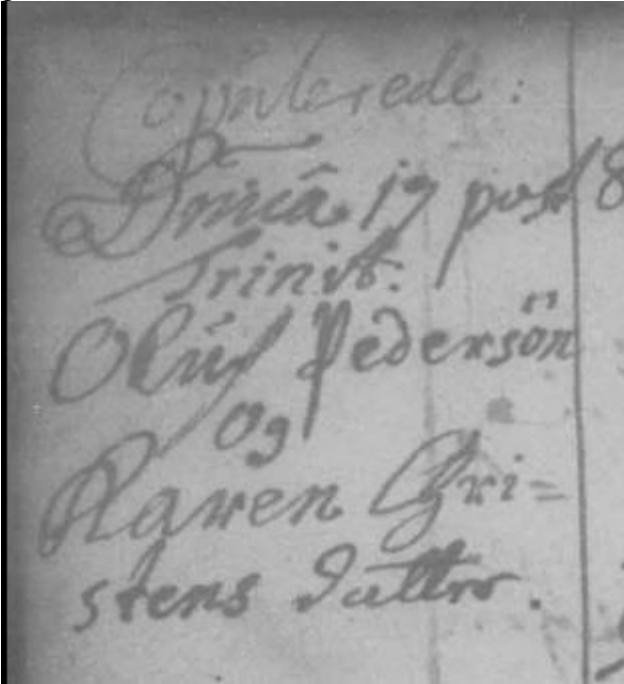 Copulerede:
Dnicâ. 17 post 8
Trinit:
Oluf Pedersön
og
Karen Cri=
stens datter.